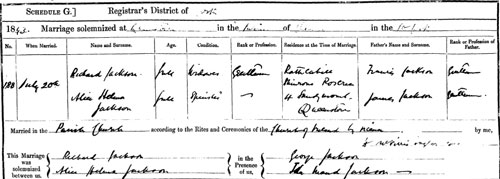 SCHEDULE G.] Registrar's District of
18 Marriage solemnized at in the of in the
No. When Married. Name and Surname. Age. Condition. Rank or Profession. Residence at the Time of Marriage. Father's Name and Surname. Rank or Profession of Father.
188 July 20th Richard Jackson full Gentleman Rathcahill Roscrea Francis Jackson Gentleman
Alice Helena Jackson full Spinster 4 Sandymount Queenstown James Jackson Gentleman
Married in the Parish Church according to the Rites and Ceremonies of the Church of Ireland by license by me,
This Marriage was solemnized between us, Richard Jackson in the Presence of us, George Jackson
Alice Helena Jackson Ida Maud Jackson